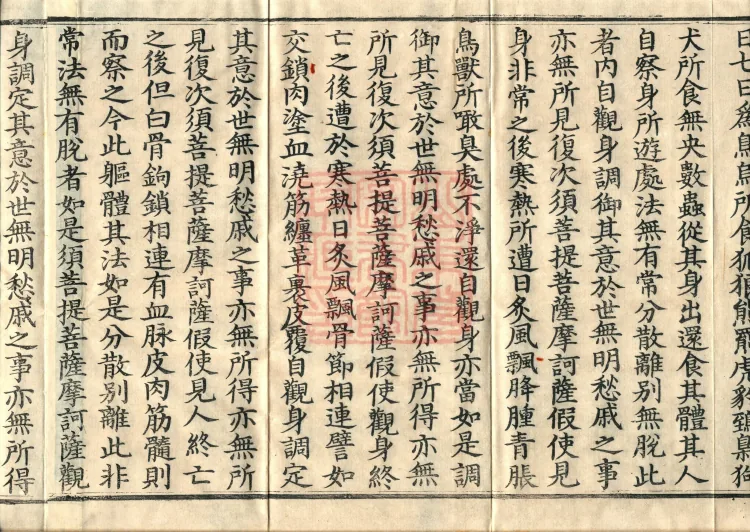 日七日爲鳥烏所食狐狼熊羆虎豹鵄梟狗
犬所食無央數蟲從其身出還食其體其人
自察身所遊處法無有常分散離別無脫此
者內自觀身調御其意於世無明愁戚之事
亦無所見復次須菩提菩薩摩訶薩假使見
身非常之後寒熱所遭日炙風飄膖腫青脹
鳥獸所噉臭處不淨還自觀身亦當如是調
御其意於世無明愁戚之事亦無所得亦無
所見復次須菩提菩薩摩訶薩假使觀身終
亡之後遭於寒熱日炙風飄骨節相連譬如
交鎖肉塗血澆筋纏革裹皮覆自觀身調定
其意於世無明愁戚之事亦無所得亦無所
見復次須菩提菩薩摩訶薩假使見人終亡
之後但白骨鉤鎖相連有血脉皮肉筋髓則
而察之今此軀體其法如是分散別離此非
常法無有脫者如是須菩提菩薩摩訶薩觀
身調定其意於世無明愁戚之事亦無所得